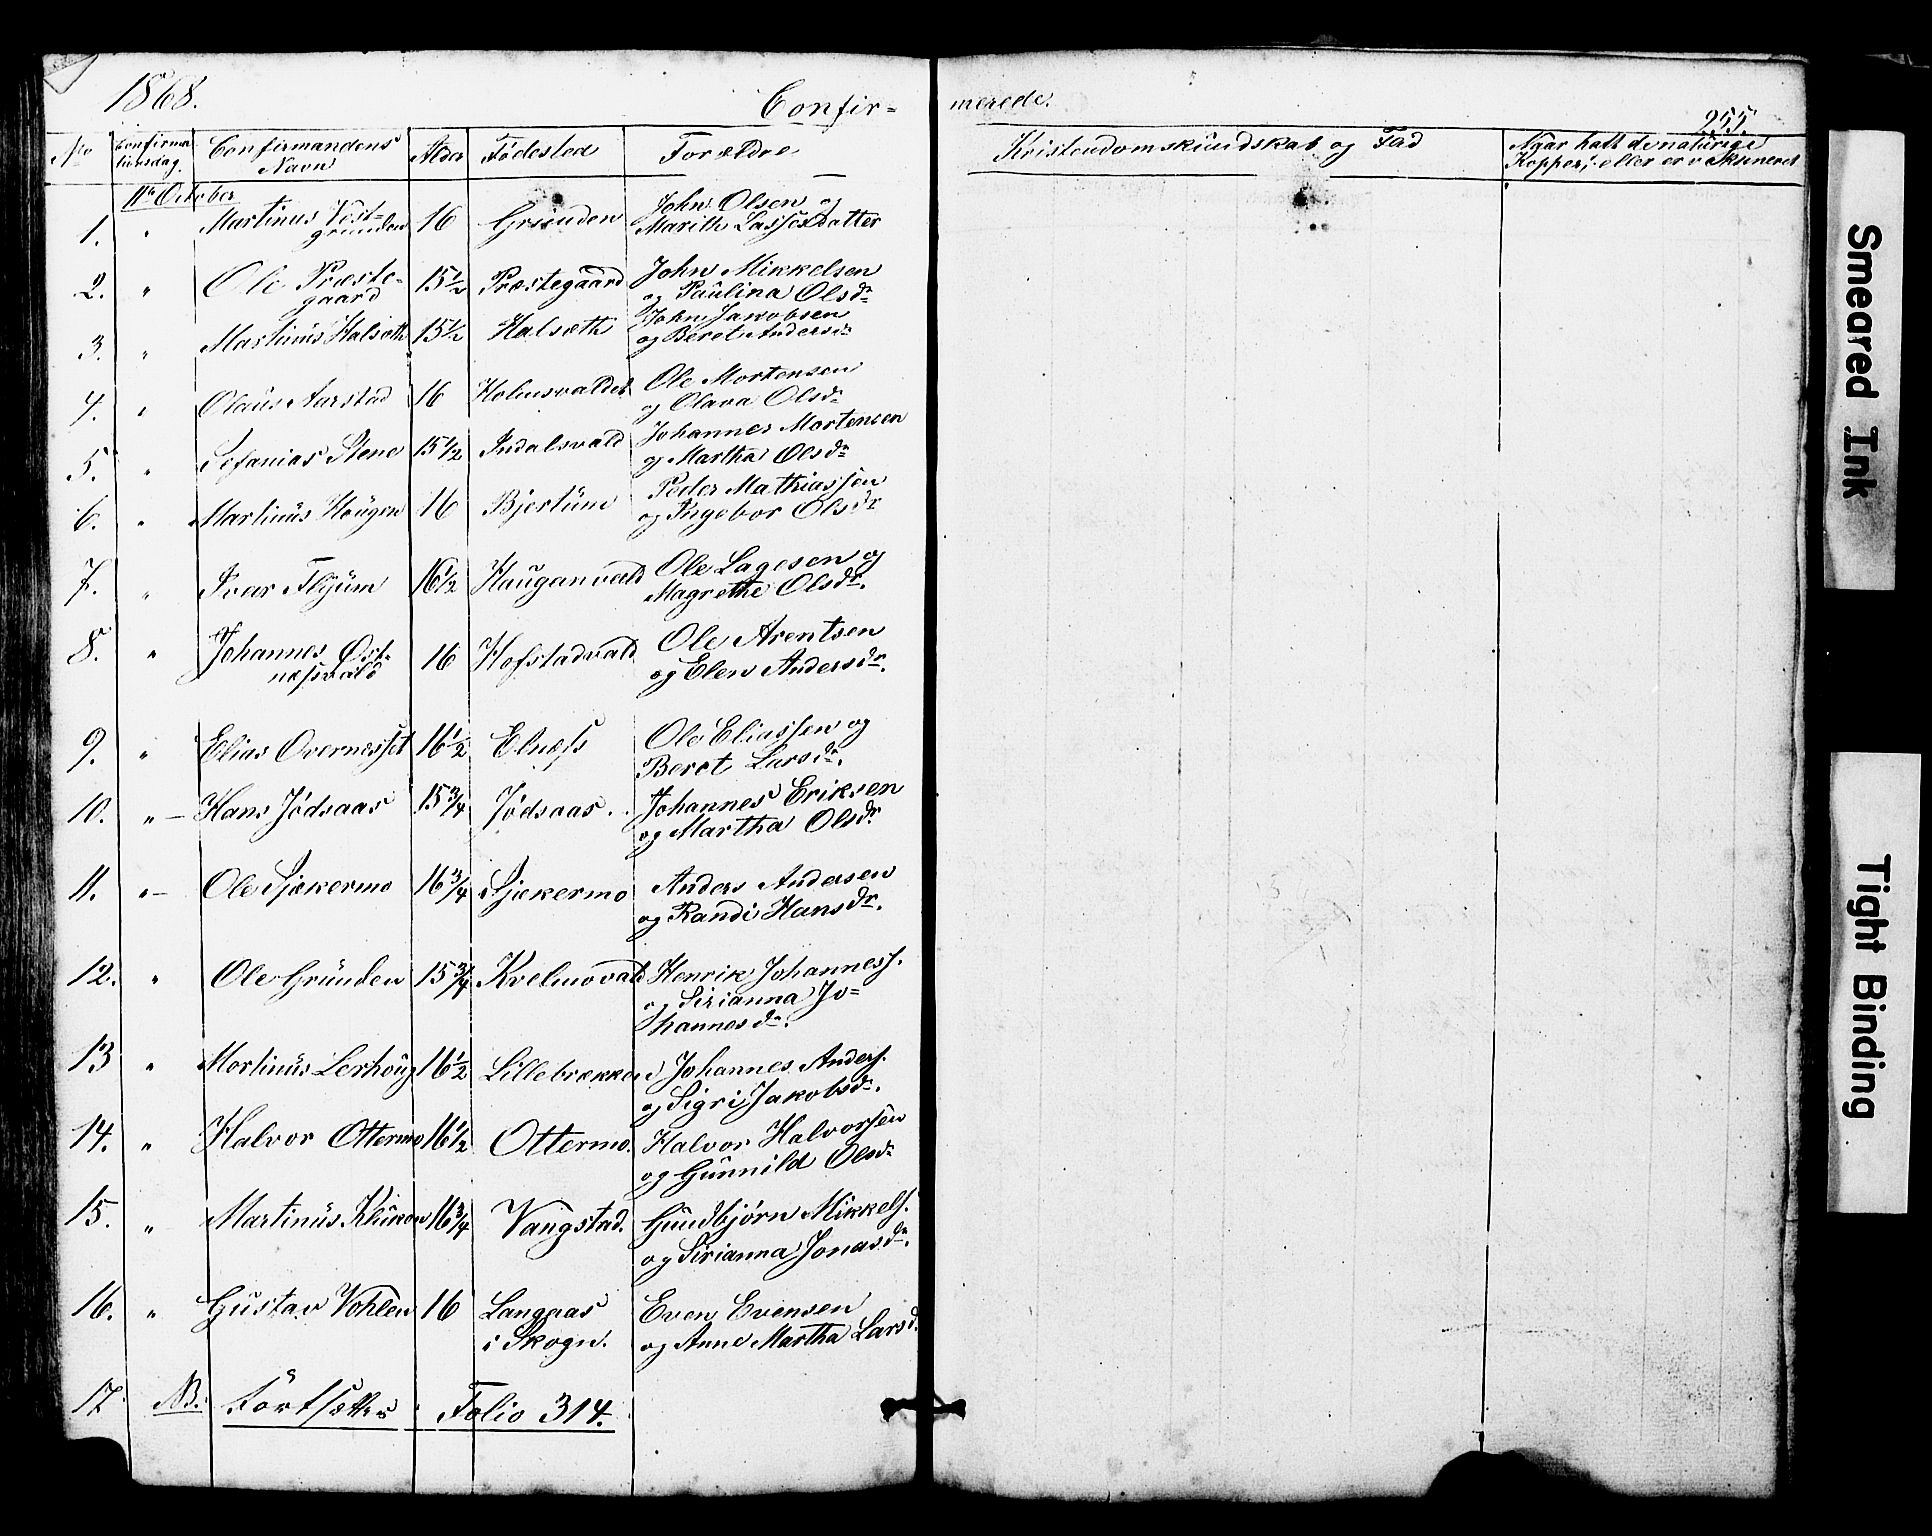 1868.
Confir=
merede.
255.
No
Confirma
tionsdag.
Confirmandens
Navn
Alder
Fødested
Forældre
Kristendomskundskab og Fad
Naar havt de naturlige
Kopper; eller er vaksineret
11te October
1. " Martinus Vest=
grunden 16 Grunden John Olsen og
Marith Lassesdatter
2. " Ole Præste-
gaard 15 1/2 Præstegaard John Mikkelsen
og Paulina Olsdr
3. " Martinus Halseth 15 1/2 Halseth John Jakobsen
og Beret Andersdr
4. " Olaus Aarstad 16 Holmsvaldet Ole Mortensen
og Olava Olsdr
5. " Sefanias Stene 15 1/2 Indalsvald Johannes Mortensen
og Martha Olsdr
6. " Martinus Haugen 16 Bjertum Peder Mathiassen
og Ingebor Olsdr
7. " Ivar Flyum 16 1/2 Hauganvald Ole Lagesen og
Magrethe Olsdr.
8. " Johannes Øst-
næssvald 16 Hofstadvald Ole Arentsen
og Elen Andersdr.
9. " Elias Overnesset 16 1/2 Elnæss Ole Eliassen og
Beret Larsdr.
10. " Hans Jødsaas 15 3/4 Jødsaas. Johannes Eriksen
og Martha Olsdr
11. " Ole Sjækermo 16 3/4 Sjækermo Anders Andersen
og Randi Hansdr.
12. " Ole Grunden 15 3/4 Kvelmovald Henrik Johanness.
og Sirianna Jo=
hannesdr.
13 " Mortinus Lerhoug 16 1/2 Lillebrækken Johannes Anders.
og Sigri Jakobsdr.
14. " Halvor Ottermo 16 1/2 Ottermo. Halvor Halvorsen
og Gunnild Olsdr
15. " Martinus Kluken 16 3/4 Vangstad. Gundbjørn Mikkels.
og Sirianna Jonasdr.
16. " Gustav Vohlen 16 Langaas
i Skogn. Even Evensen
og Anne Martha Larsd.
17. NB. Fortsættes Folio 314.
Smeared Ink
Tight Binding